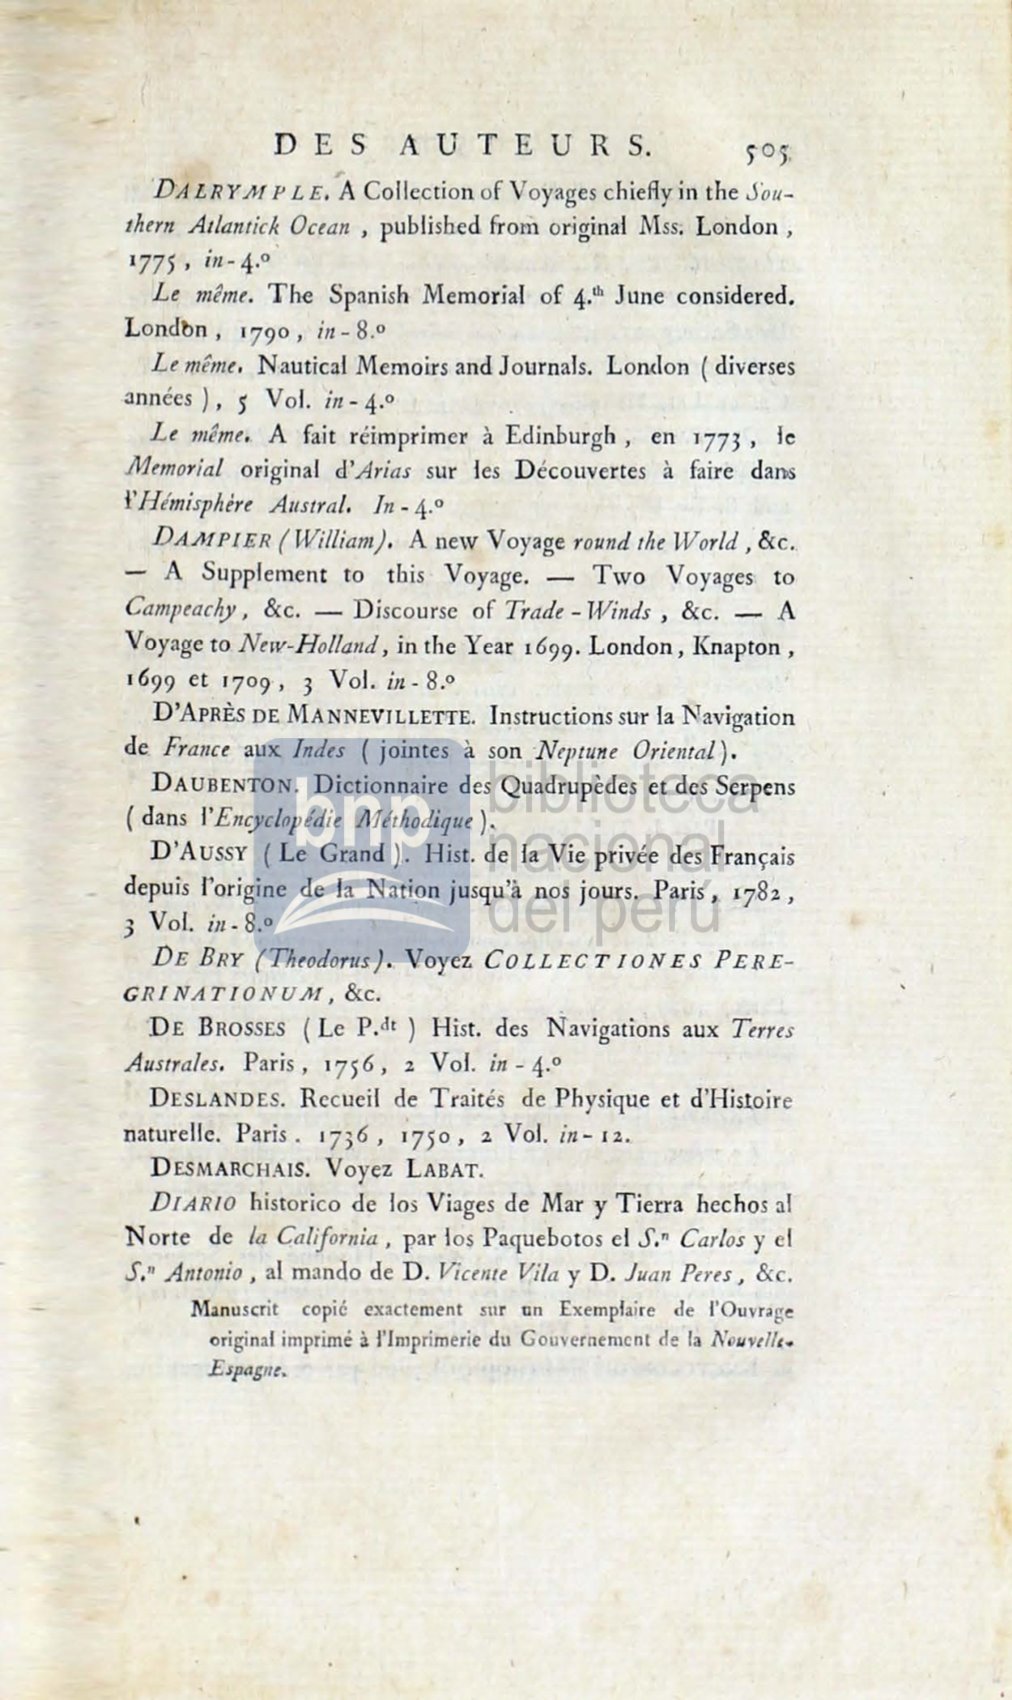 DES AUTEURS. 505
DALRYMPLE. A Collection of Voyages chiefly in the Sou-
thern Atlantick Ocean , published from original Mss. London ,
1775 , in-4.º
Le même. The Spanish Memorial of 4.th June considered.
London , 1790 , in-8.º
Le même. Nautical Memoirs and Journals. London ( diverses
années ), 5 Vol. in-4.º
Le même. A fait réimprimer à Edinburgh , en 1773 , le
Memorial original d'Arias sur les Découvertes à faire dans
l'Hémisphère Austral. In-4.º
DAMPIER (William). A new Voyage round the World , &c.
— A Supplement to this Voyage. — Two Voyages to
Campeachy, &c. — Discourse of Trade-Winds , &c. — A
Voyage to New-Holland, in the Year 1699. London, Knapton ,
1699 et 1709, 3 Vol. in-8.º
D'APRÈS DE MANNEVILLETTE. Instructions sur la Navigation
de France aux Indes ( jointes à son Neptune Oriental ).
DAUBENTON. Dictionnaire des Quadrupèdes et des Serpens
( dans l'Encyclopédie Méthodique ).
D'AUSSY ( Le Grand ). Hist. de la Vie privée des Français
depuis l'origine de la Nation jusqu'à nos jours. Paris, 1782,
3 Vol. in-8.º
DE BRY (Theodorus). Voyez COLLECTIONES PERE-
GRINATIONUM, &c.
DE BROSSES ( Le P.dt ) Hist. des Navigations aux Terres
Australes. Paris, 1756, 2 Vol. in-4.º
DESLANDES. Recueil de Traités de Physique et d'Histoire
naturelle. Paris. 1736, 1750, 2 Vol. in-12.
DESMARCHAIS. Voyez LABAT.
DIARIO historico de los Viages de Mar y Tierra hechos al
Norte de la California, par los Paquebotos el S.n Carlos y el
S.n Antonio, al mando de D. Vicente Vila y D. Juan Peres, &c.
Manuscrit copié exactement sur un Exemplaire de l'Ouvrage
original imprimé à l'Imprimerie du Gouvernement de la Nouvelle-
Espagne.
bnp biblioteca
nacional
del perú